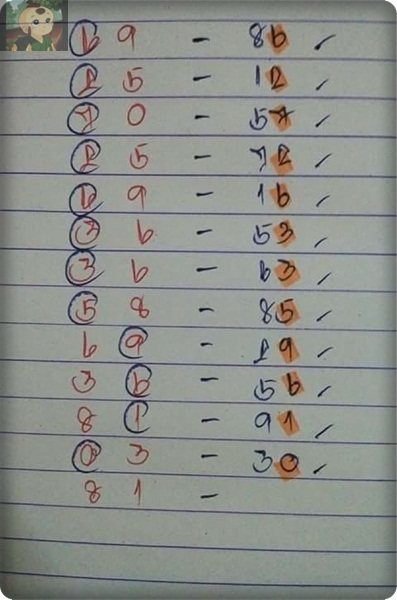 6 9 - 86 ✓
2 5 - 12 ✓
7 0 - 57 ✓
2 5 - 72 ✓
6 9 - 16 ✓
3 6 - 53 ✓
3 6 - 63 ✓
5 8 - 85 ✓
6 9 - 29 ✓
3 6 - 56 ✓
8 1 - 91 ✓
0 3 - 30 ✓
8 1 -